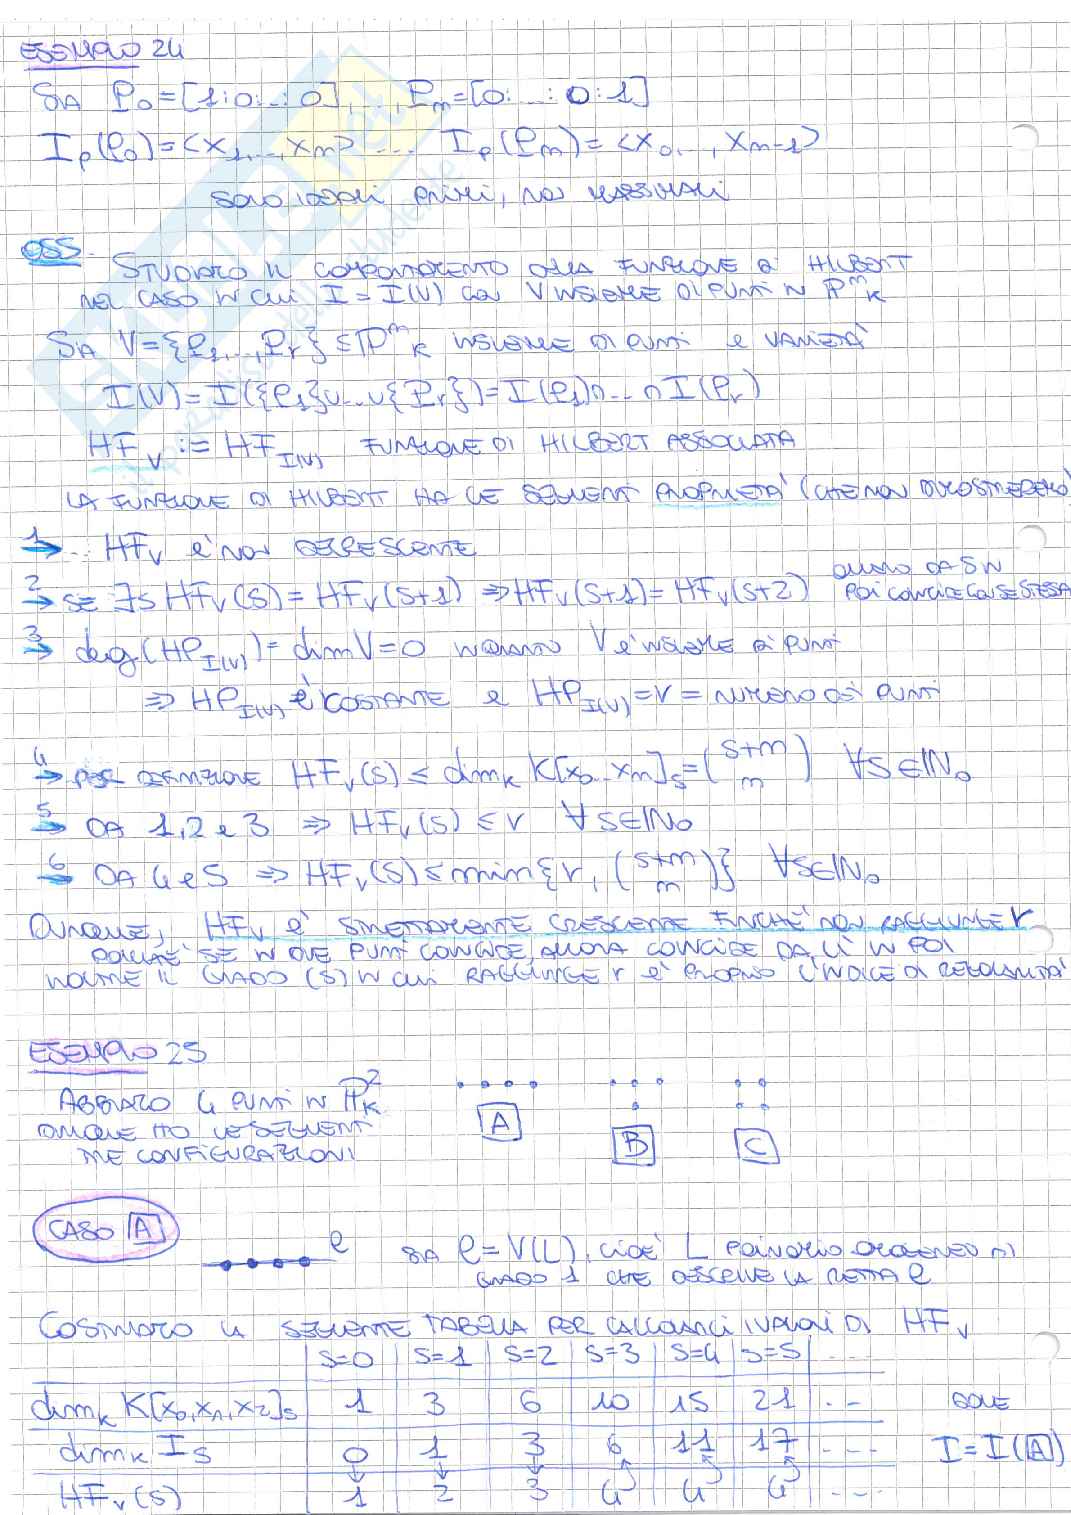 ESEMPIO 24
SIA P₀=[1:0:...:0],...,Pₘ=[0:...:0:1]
Iₚ(P₀)=<x₁,...,xₘ> ... Iₚ(Pₘ)=<x₀,...,xₘ₋₁>
SONO IDEALI PRIMI, NON MASSIMALI
OSS. STUDIAMO IL COMPORTAMENTO DELLA FUNZIONE DI HILBERT
NEL CASO IN CUI I=I(V) CON V INSIEME DI PUNTI IN ℙᵐ_K
SIA V={P₁,...,Pᵣ}⊆ℙᵐ_K INSIEME DI PUNTI E VARIETÀ
I(V)=I({P₁}∪...∪{Pᵣ})=I(P₁)∩...∩I(Pᵣ)
HF_V := HF_I(V) FUNZIONE DI HILBERT ASSOCIATA
LA FUNZIONE DI HILBERT HA LE SEGUENTI PROPRIETÀ (CHE NON DIMOSTREREMO)
1→ HF_V È NON DECRESCENTE
2→ SE ∃s HF_V(s)=HF_V(s+1) ⇒ HF_V(s+1)=HF_V(s+2) OVVERO DA S IN
POI COINCIDE CON SE STESSA
3→ deg(HP_I(V))=dim V=0 IN QUANTO V È INSIEME DI PUNTI
⇒ HP_I(V) È COSTANTE E HP_I(V)=r=NUMERO DEI PUNTI
4→ PER DEFINIZIONE HF_V(s) ≤ dim_K K[x₀...xₘ]_s=(s+m m) ∀s∈ℕ₀
5→ DA 1,2 e 3 ⇒ HF_V(s) ≤ r ∀s∈ℕ₀
6→ DA 4 e 5 ⇒ HF_V(s) ≤ min{r, (s+m m)} ∀s∈ℕ₀
DUNQUE, HF_V È STRETTAMENTE CRESCENTE FINCHÉ NON RAGGIUNGE r
POICHÉ SE IN DUE PUNTI COINCIDE, ALLORA COINCIDE DA LÌ IN POI
INOLTRE IL GRADO (s) IN CUI RAGGIUNGE r È PROPRIO L'INDICE DI REGOLARITÀ
ESEMPIO 25
ABBIAMO 4 PUNTI IN ℙ²_K
DUNQUE HO LE SEGUENTI
TRE CONFIGURAZIONI
A
B
C
CASO A
ℓ
SIA ℓ=V(L), CIOÈ L POLINOMIO OMOGENEO DI
GRADO 1 CHE DESCRIVE LA RETTA ℓ
COSTRUIAMO LA SEGUENTE TABELLA PER CALCOLARCI I VALORI DI HF_V
s=0 s=1 s=2 s=3 s=4 s=5 ...
dim_K K[x₀,x₁,x₂]_s 1 3 6 10 15 21 ... DOVE
dim_K I_s 0 1 3 6 11 17 ... I=I(A)
HF_V(s) 1 2 3 4 4 4 ...